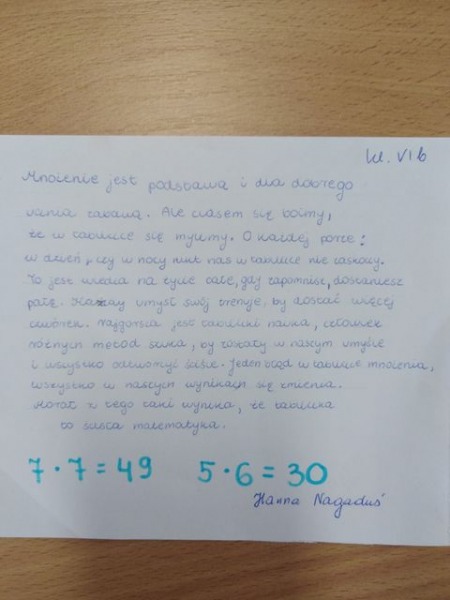 kl. VI b
Mnożenie jest podstawą i dla dobrego
zabawą. Ale czasem się boimy,
że w tabliczce się mylimy. O każdej porze:
w dzień, czy w nocy nikt nas w tabliczce nie zaskoczy.
To jest wiedza na życie całe, gdy zapomnisz, dostaniesz
pałę. Każdy umysł swój trenuje, by dostać więcej
czwórek. Najgorsza jest tabliczki nauka, człowiek
różnych metod szuka, by zostały w naszym umyśle
i wszystko odtworzyć ściśle. Jeden błąd w tabliczce mnożenia,
wszystko w naszych wynikach się zmienia.
Morał z tego taki wynika, że tabliczka
to ścisła matematyka.
7 · 7 = 49 5 · 6 = 30
Hanna Nagaduś